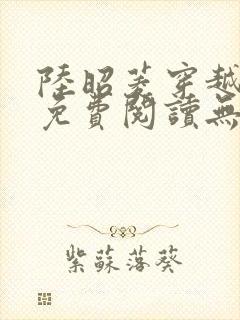 陸昭菱穿越
免費閱讀無
紫蘇落葵